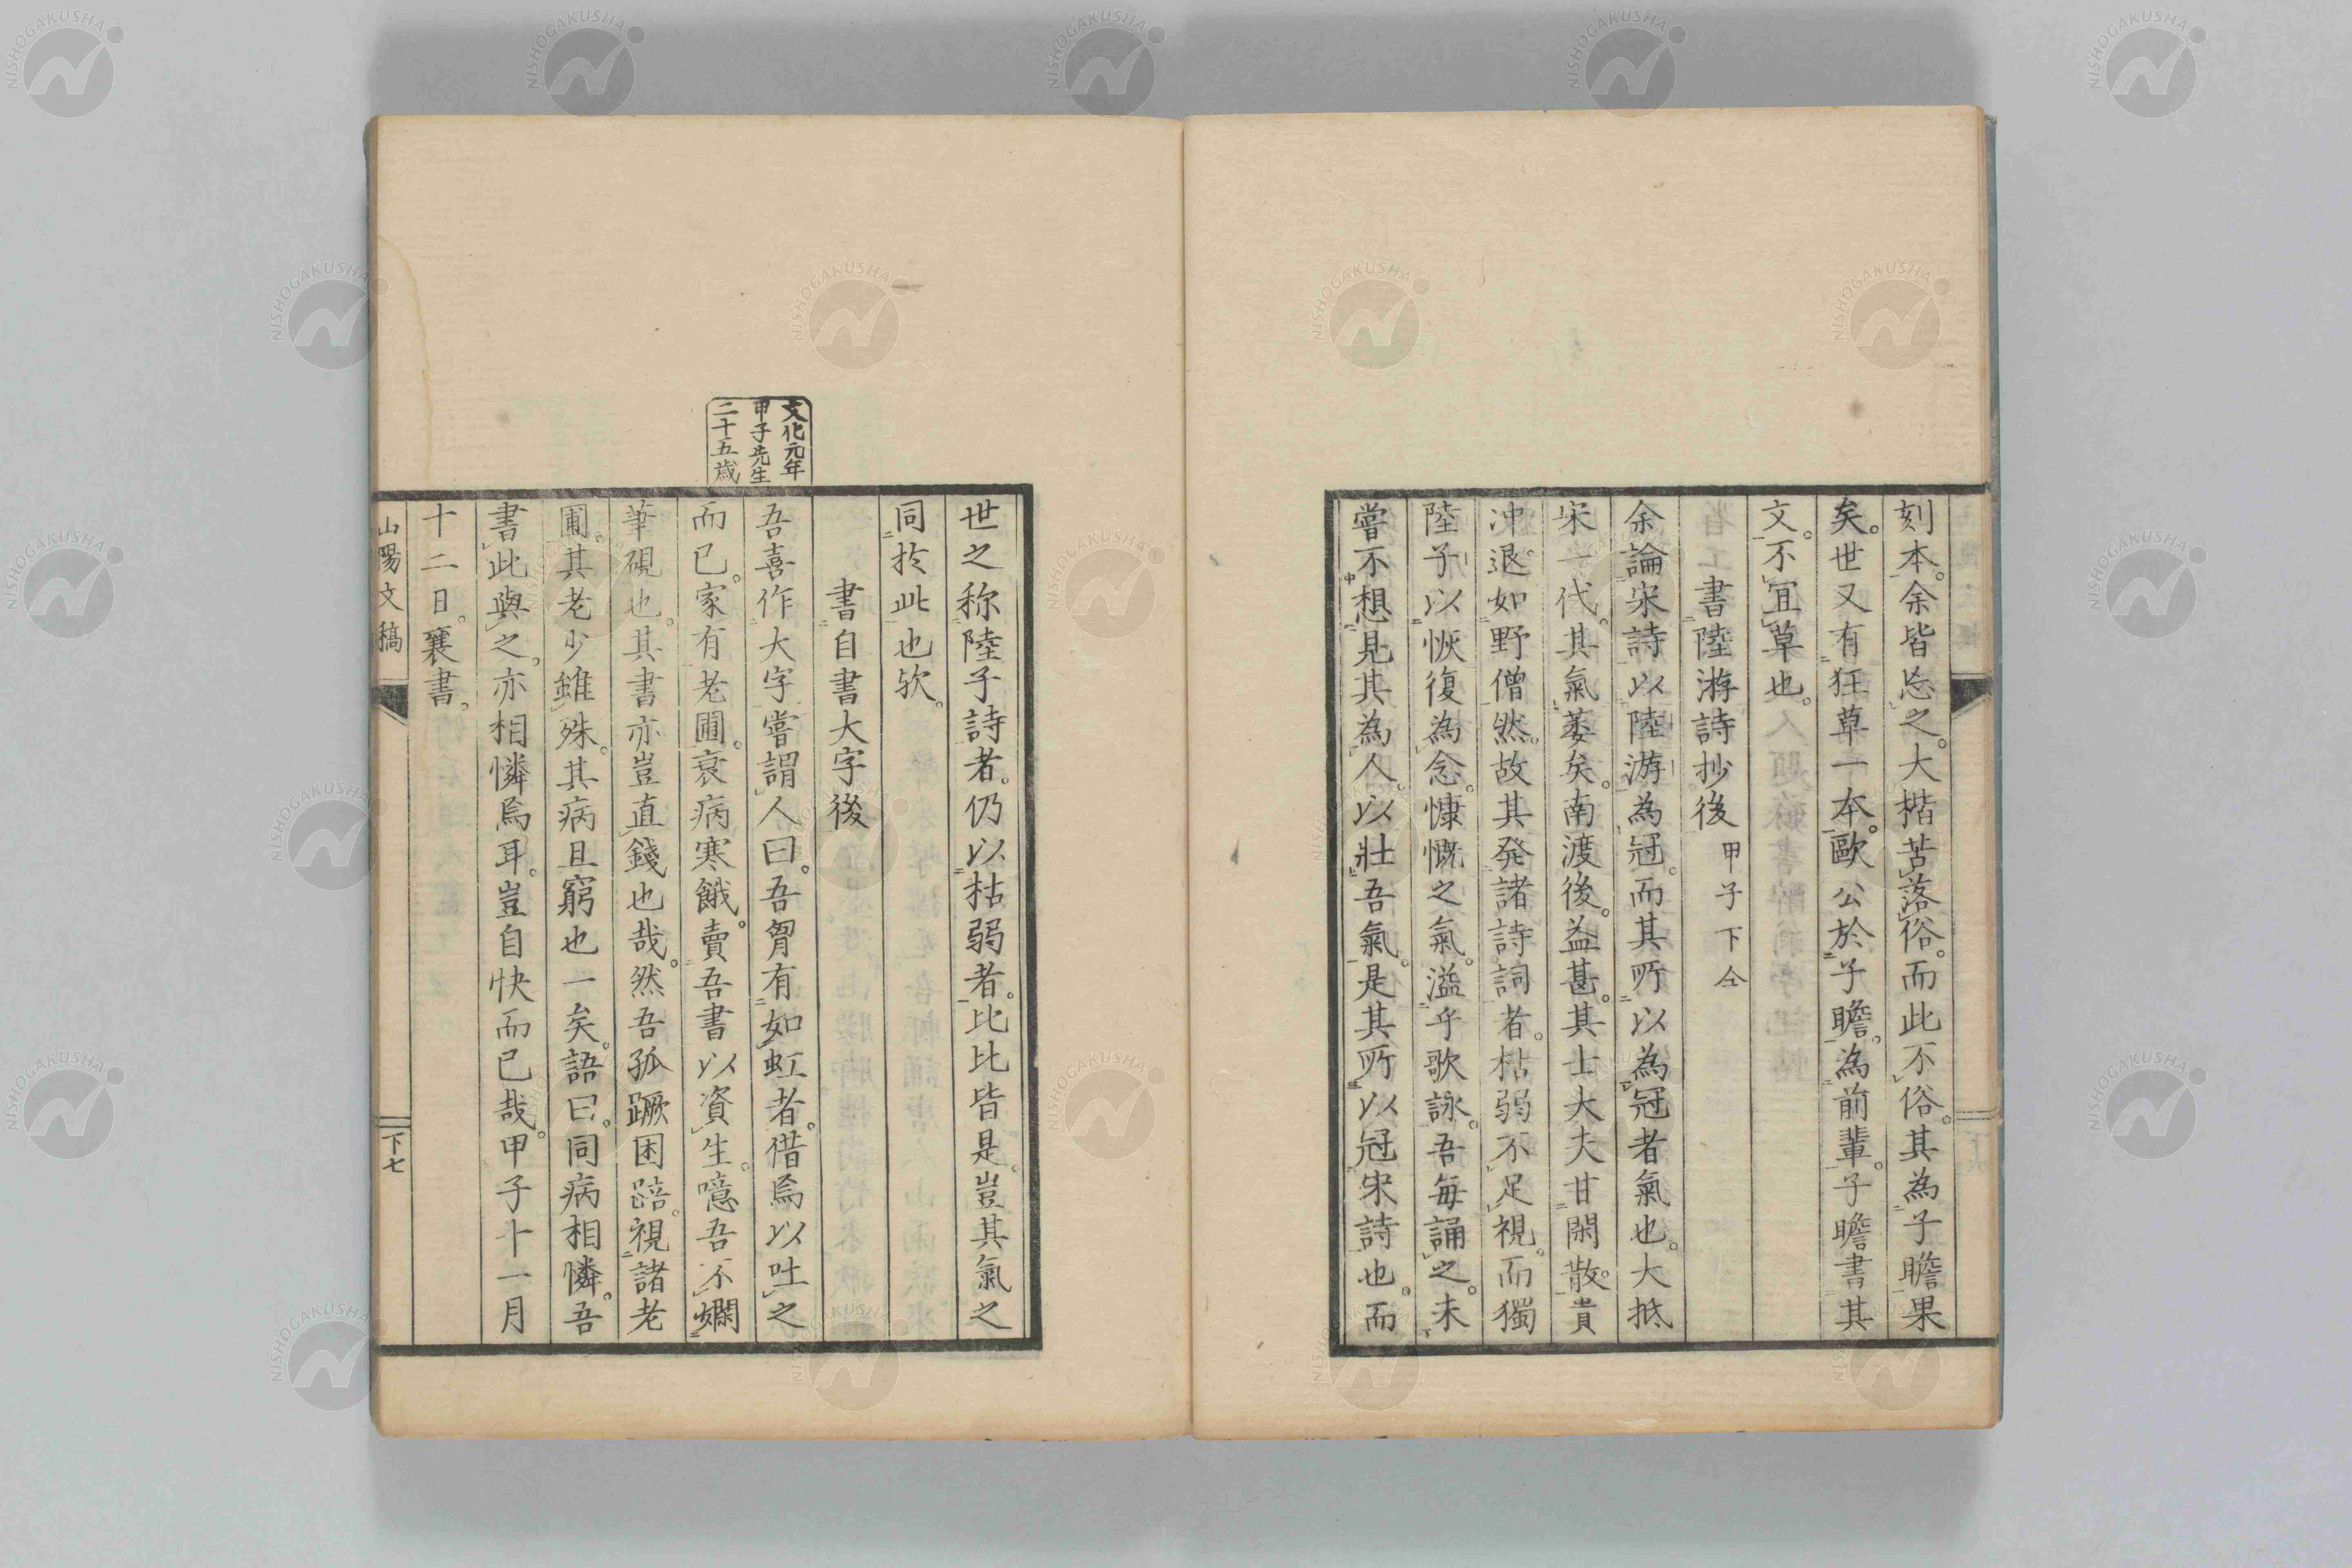 刻本。余皆忘之。大楷苦落俗。而此不俗。其為子瞻果
矣。世又有狂草一本。歐公於子瞻。為前輩。子瞻書其
文。不宜草也。
書陸游詩抄後 甲子下仝
余論宋詩以陸游為冠。而其所以為冠者氣也。大抵
宋一代。其氣萎矣。南渡後。益甚。其士大夫甘閑散。貴
沖退。如野僧然。故其発諸詩詞者。枯弱不足視。而獨
陸子以恢復為念。慷慨之氣。溢乎歌詠。吾每誦之。未
嘗不想見其為人。以壮吾氣。是其所以冠宋詩也。而
世之称陸子詩者。仍以枯弱者。比比皆是。豈其氣之
同於此也欤。
書自書大字後
文化元年
甲子先生
二十五歳
吾喜作大字嘗謂人曰。吾胷有如虹者。借焉以吐之
而已。家有老圃。衰病寒餓。賣吾書以資生。噫吾不嫻
筆硯也。其書亦豈直錢也哉。然吾孤蹶困踣。視諸老
圃。其老少雖殊。其病且窮也一矣。語曰。同病相憐。吾
書此與之。亦相憐焉耳。豈自快而已哉。甲子十一月
十二日。襄書。
山陽文稿
下七
NISHOGAKUSHA